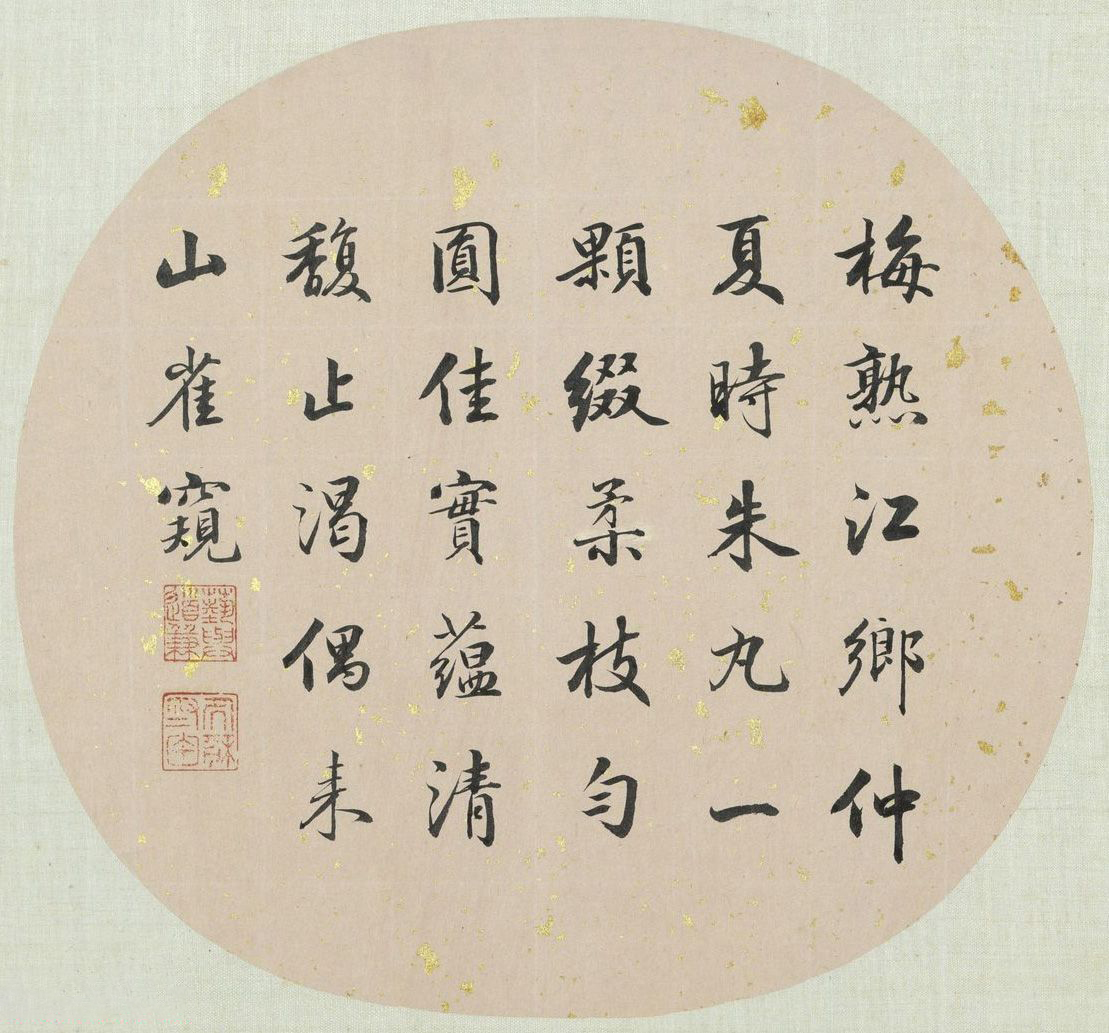 梅熟江鄉仲
夏時朱丸一
顆綴柔枝勻
圓佳實蘊清
馥止渴偶來
山雀窺